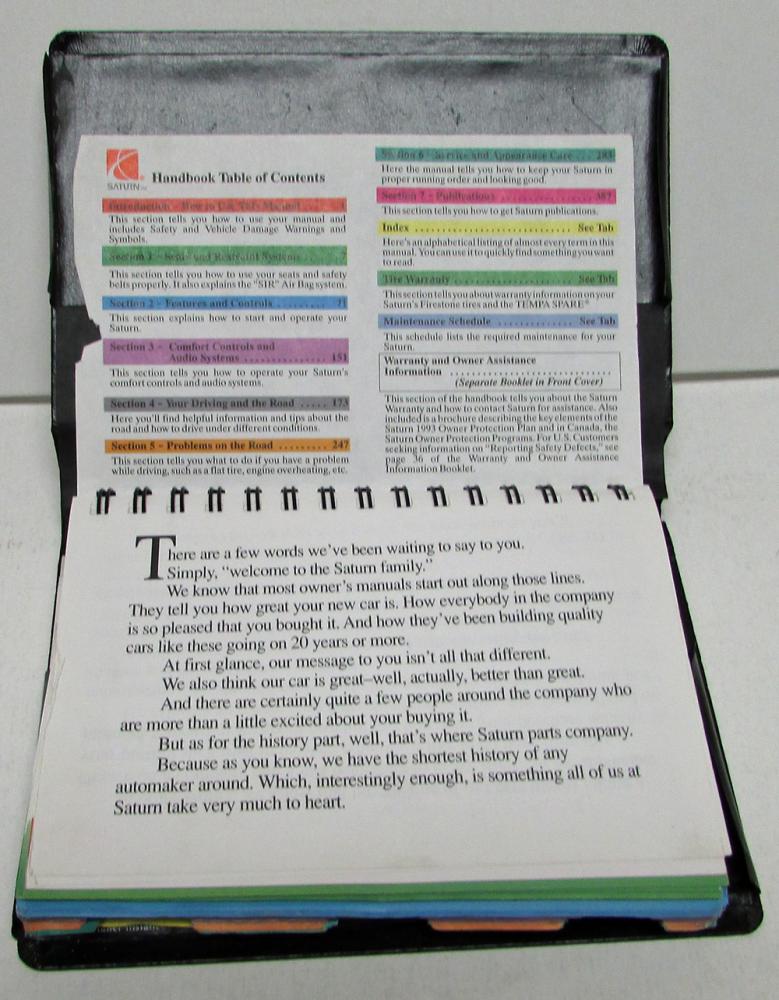 SATURN
Handbook Table of Contents
Introduction - How to Use This Manual .... 1
This section tells you how to use your manual and
includes Safety and Vehicle Damage Warnings and
Symbols.
Section 1 - Seats and Restraint Systems ...... 7
This section tells you how to use your seats and safety
belts properly. It also explains the "SIR" Air Bag system.
Section 2 - Features and Controls ......... 71
This section explains how to start and operate your
Saturn.
Section 3 - Comfort Controls and
Audio Systems .............. 151
This section tells you how to operate your Saturn's
comfort controls and audio systems.
Section 4 - Your Driving and the Road ..... 173
Here you'll find helpful information and tips about the
road and how to drive under different conditions.
Section 5 - Problems on the Road ......... 247
This section tells you what to do if you have a problem
while driving, such as a flat tire, engine overheating, etc.
Section 6 - Service and Appearance Care ... 283
Here the manual tells you how to keep your Saturn in
proper running order and looking good.
Section 7 - Publications ................. 387
This section tells you how to get Saturn publications.
Index ........................... See Tab
Here's an alphabetical listing of almost every term in this
manual. You can use it to quickly find something you want
to read.
Tire Warranty .................... See Tab
This section tells you about warranty information on your
Saturn's Firestone tires and the TEMPA SPARE®
Maintenance Schedule ............. See Tab
This schedule lists the required maintenance for your
Saturn.
Warranty and Owner Assistance
Information ..............................
(Separate Booklet in Front Cover)
This section of the handbook tells you about the Saturn
Warranty and how to contact Saturn for assistance. Also
included is a brochure describing the key elements of the
Saturn 1993 Owner Protection Plan and in Canada, the
Saturn Owner Protection Programs. For U.S. Customers
seeking information on "Reporting Safety Defects," see
page 36 of the Warranty and Owner Assistance
Information Booklet.
There are a few words we've been waiting to say to you.
Simply, "welcome to the Saturn family."
We know that most owner's manuals start out along those lines.
They tell you how great your new car is. How everybody in the company
is so pleased that you bought it. And how they've been building quality
cars like these going on 20 years or more.
At first glance, our message to you isn't all that different.
We also think our car is great–well, actually, better than great.
And there are certainly quite a few people around the company who
are more than a little excited about your buying it.
But as for the history part, well, that's where Saturn parts company.
Because as you know, we have the shortest history of any
automaker around. Which, interestingly enough, is something all of us at
Saturn take very much to heart.